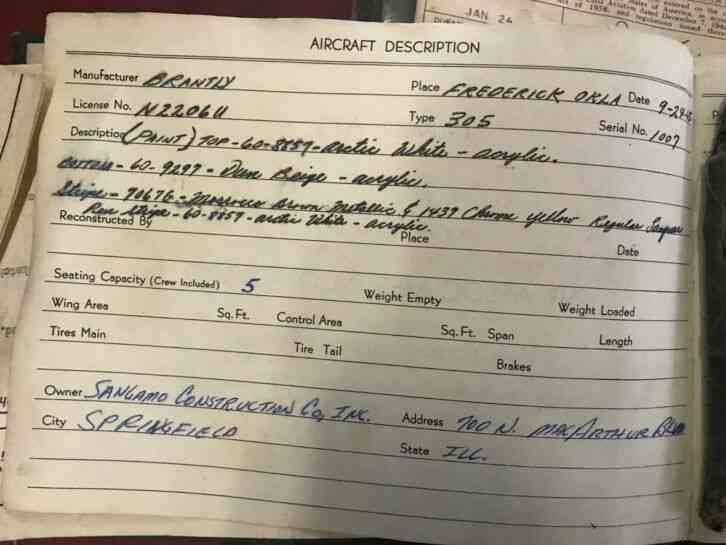 JAN 24
AIRCRAFT DESCRIPTION
Manufacturer BRANTLY Place FREDERICK OKLA Date 9-29-
License No. N2206U Type 305 Serial No. 1007
Description (PAINT) TOP-60-8857-arctic White - acrylic.
Bottom - 60-9297 - Dune Beige - acrylic.
Stripe - 70676 - Morrocco Brown Metallic & 1439 Chrome yellow Regular
Rear Stripe - 60-8857 - arctic White - acrylic.
Reconstructed By Place Date
Seating Capacity (Crew Included) 5 Weight Empty Weight Loaded
Wing Area Sq. Ft. Control Area Sq. Ft. Span Length
Tires Main Tire Tail Brakes
Owner SANGAMO CONSTRUCTION CO, INC. Address 700 N. MACARTHUR
City SPRINGFIELD State ILL.